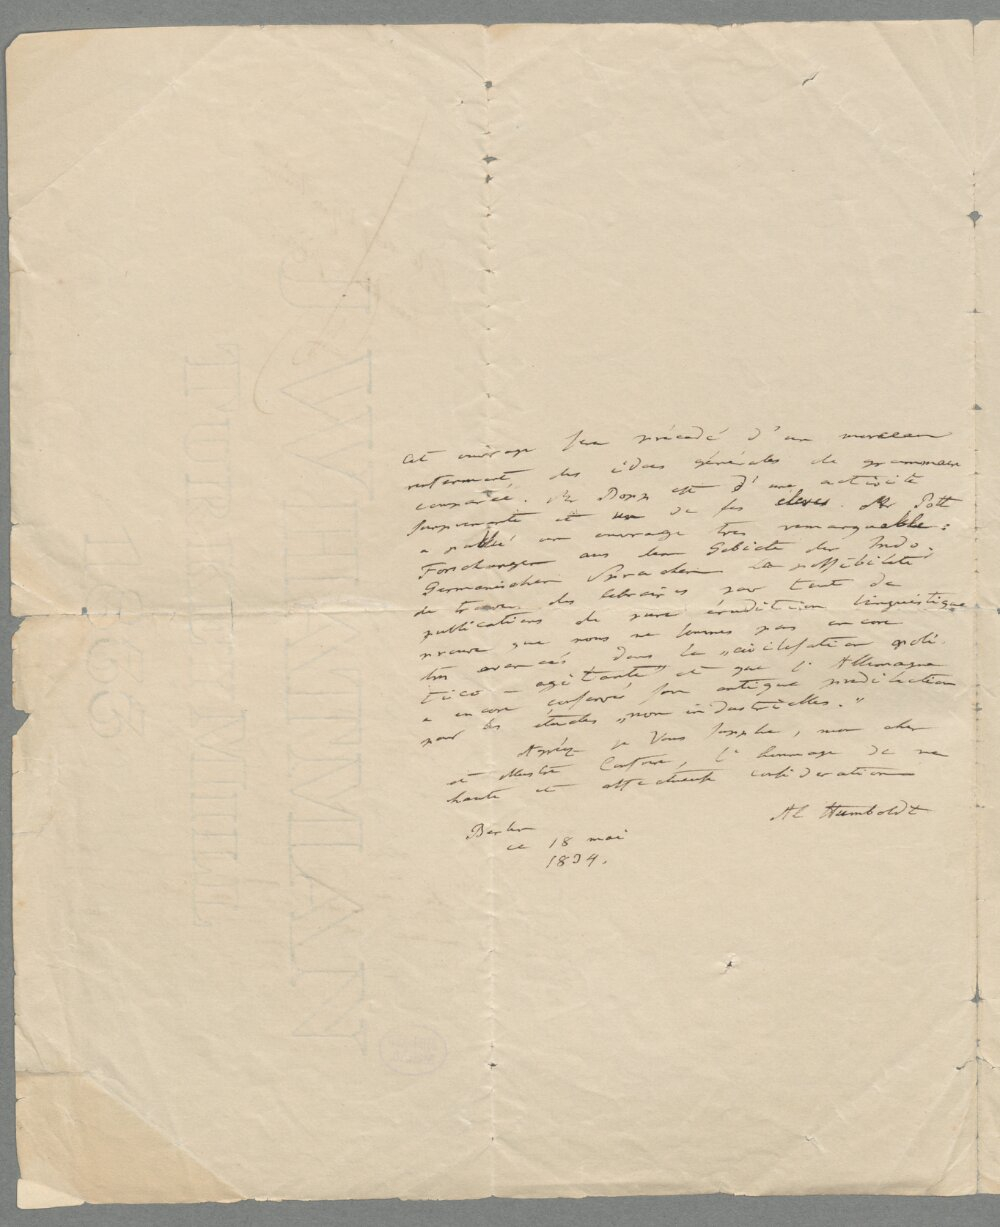 cet ouvrage sera précédé d'un morceau
renfermant des idées générales de grammaire
comparée. Mr Bopp est d'une activité
surprenante et un de ses eleves Mr Pott
a publié un ouvrage tres remarquable:
Forschungen aus dem Gebiete der Indo-
Germanischen Sprachen La possibilité
de trouver des libraires pour tant de
publications de pure érudition linguistique
prouve que nous ne sommes pas encore
tres avancés dans la „civilisation poli-
tico-agitante" et que l'Allemagne
a encore conservé son antique predilection
pour les études „non industrielles."
Agréez je Vous supplie, mon cher
et illustre Confrere, l'hommage de ma
haute et affectueuse consideration
Al Humboldt
Berlin
ce 18 mai
1834.
J WHATMAN
TURKEY MILL
1833